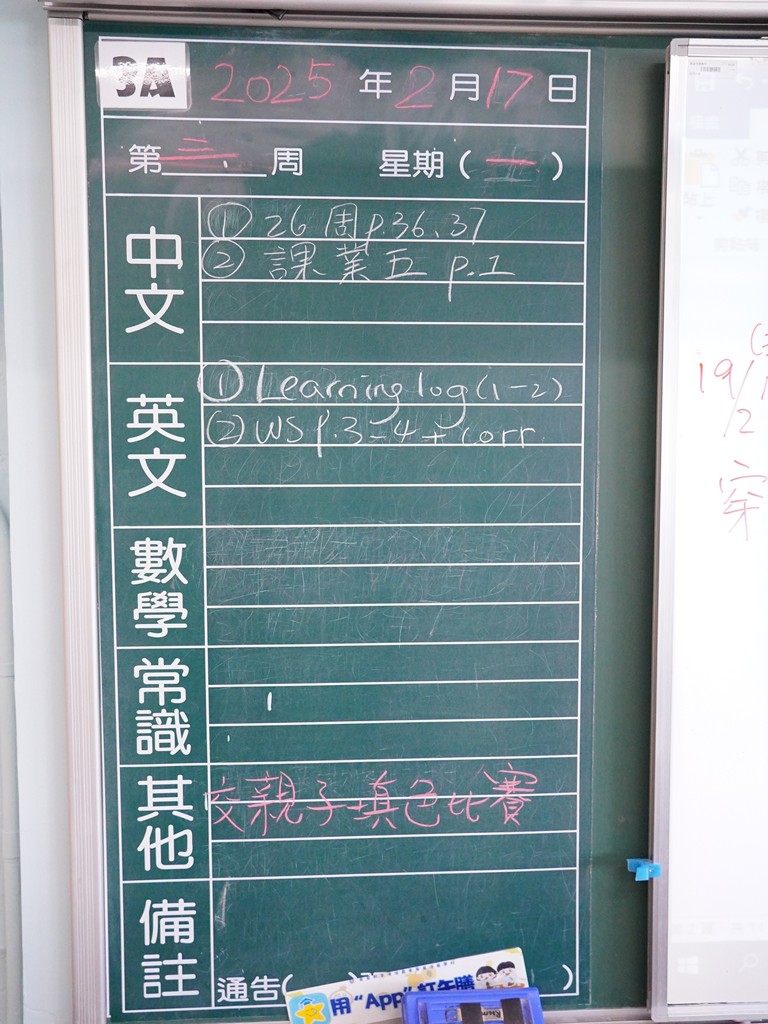 3A 2025年2月17日
第三周 星期(一)
中文
① 26周p.36、37
② 課業五 p.1
英文
① Learning log (1-2)
② WS p.3-4 + corr.
數學
常識
其他
交親子填色比賽
備註
通告( )
用“App”訂午膳
19/2
穿